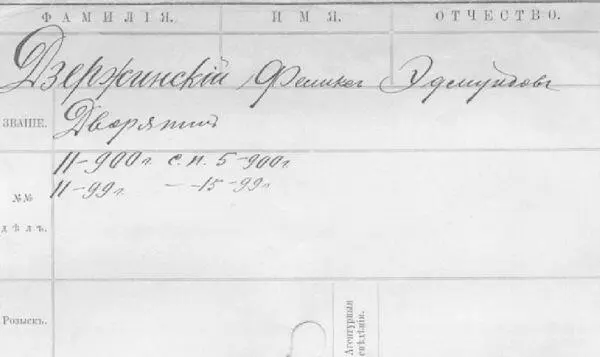 ФАМИЛІЯ. ИМЯ. ОТЧЕСТВО.
Дзержинскій Феликс Эдмундовъ
ЗВАНІЕ. Дворянинъ
11-900 г. с. п. 5-900 г.
№№ 11-99 г. — -15-99 г.
дѣлъ.
Розыскъ.
Агентурныя
свѣдѣнія.